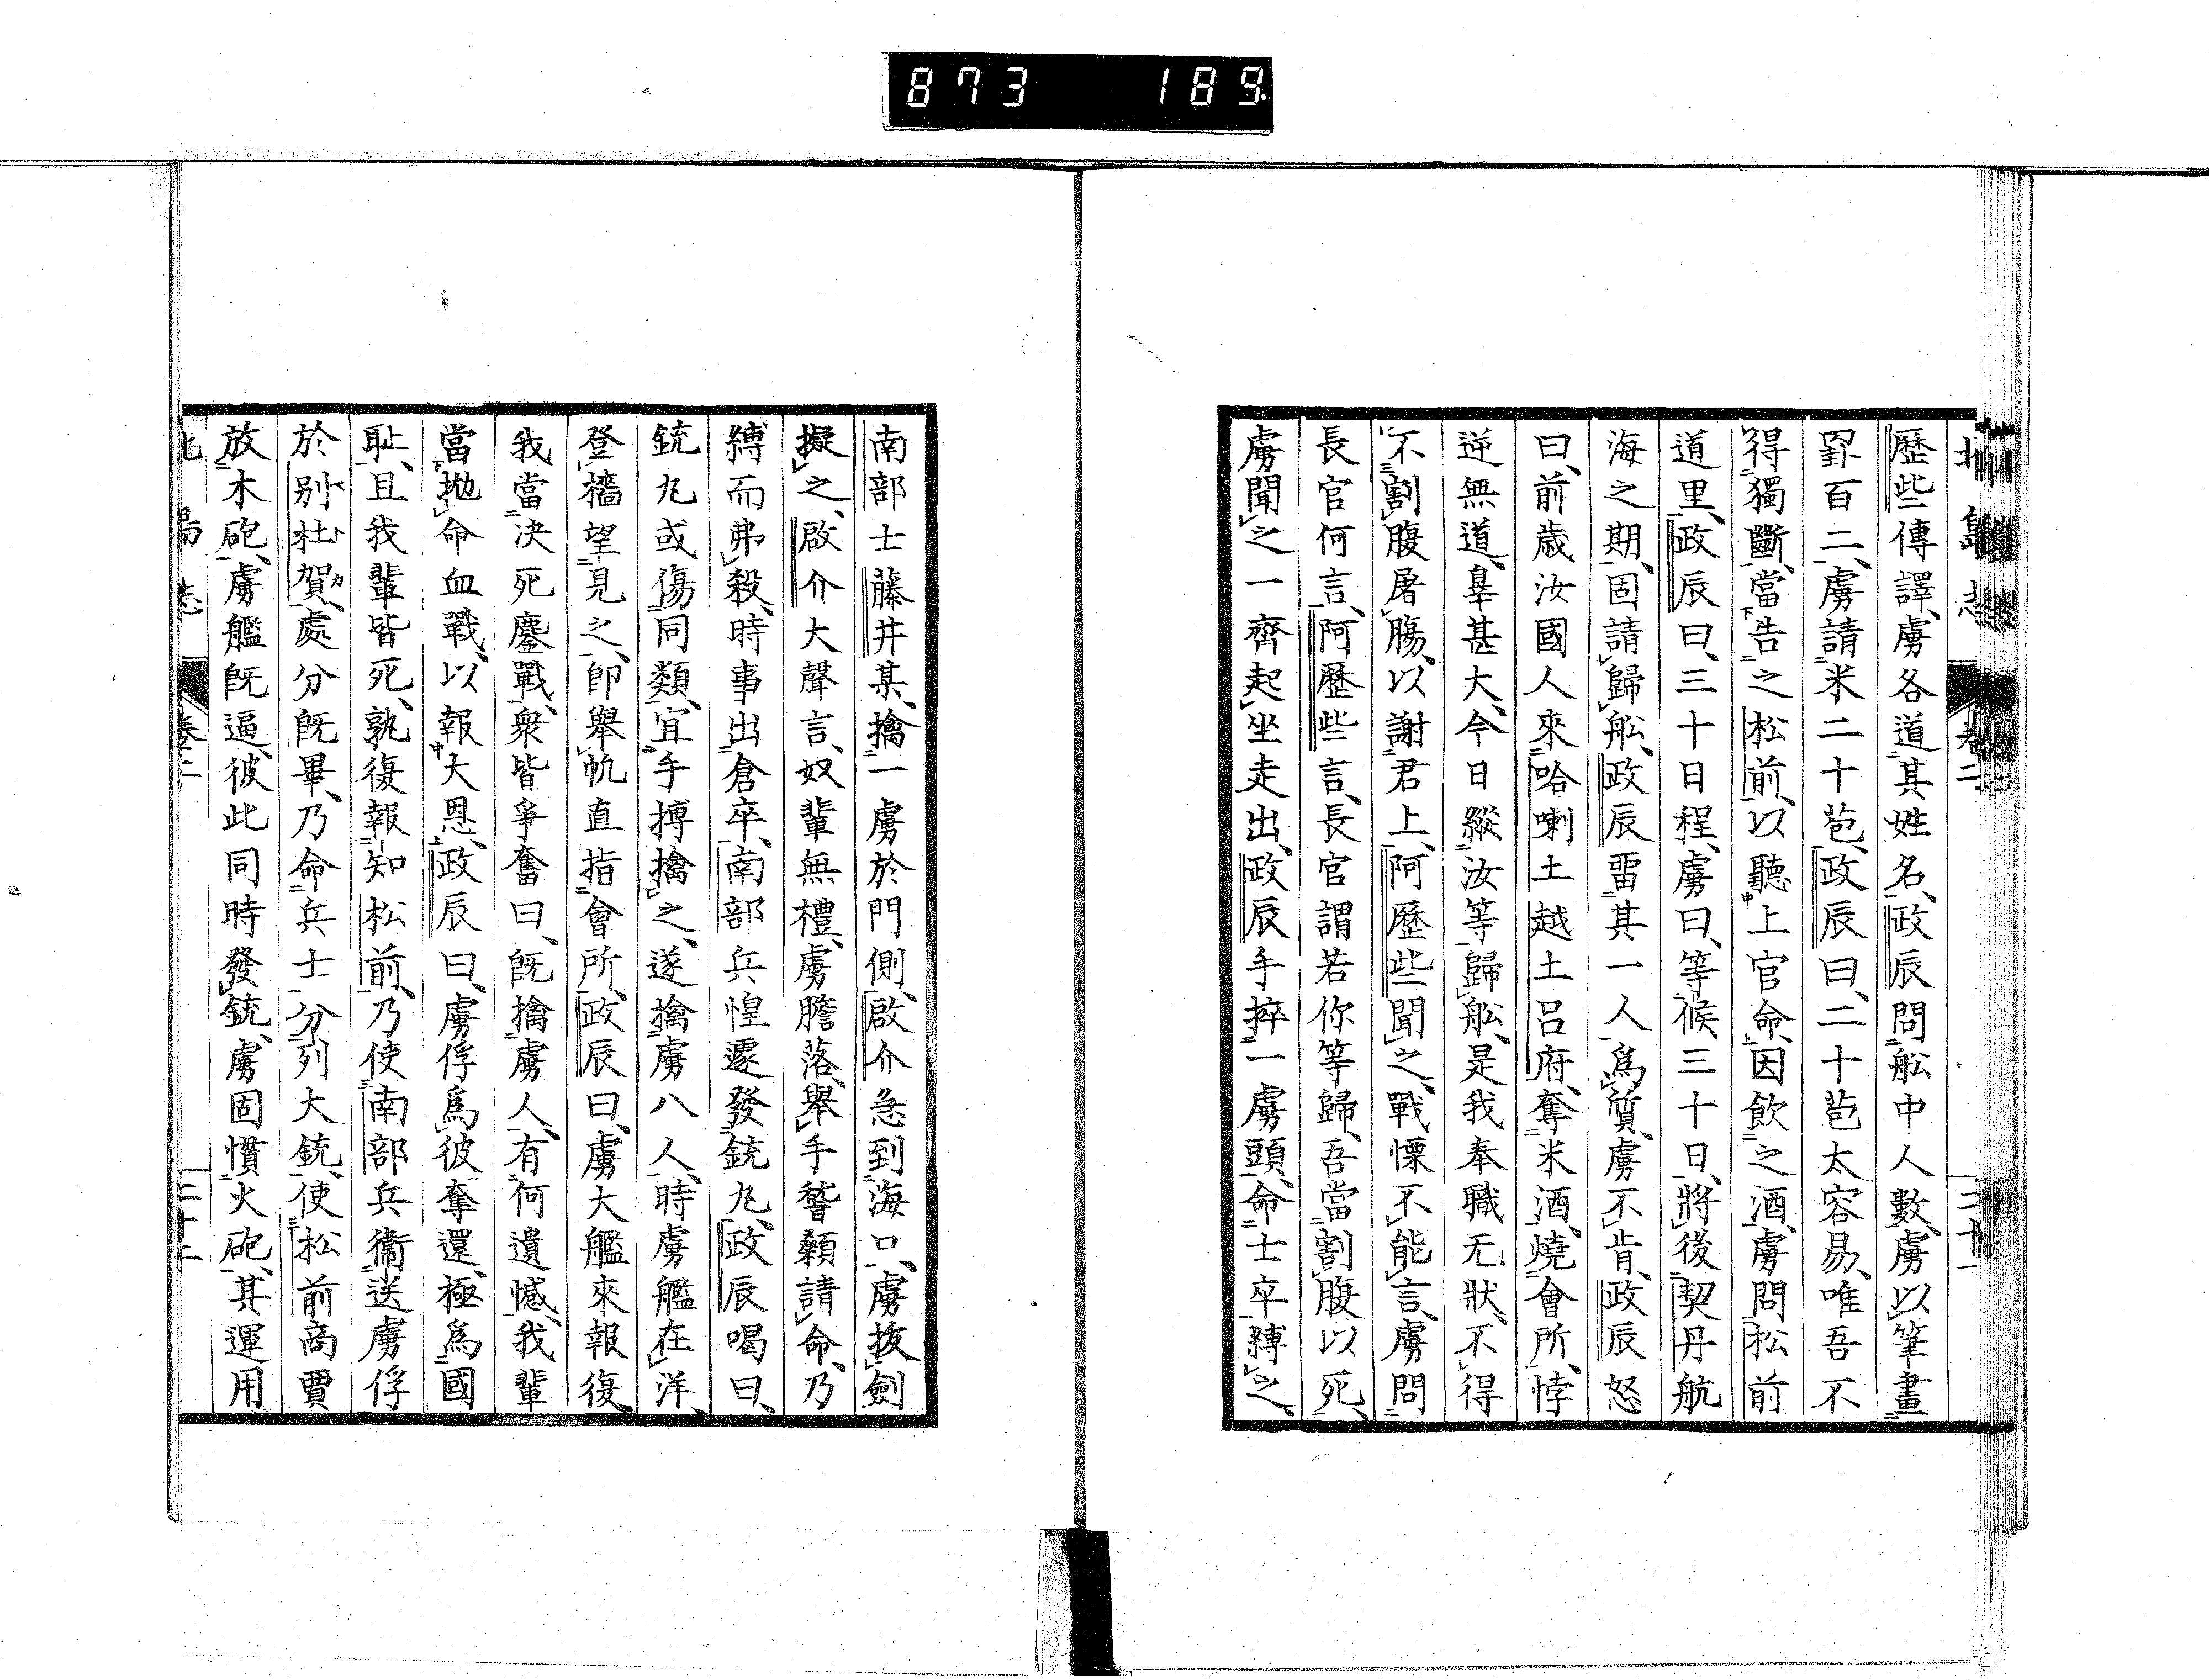 873 189.
北島志 卷二 二十一
歷些傳譯、虜各道其姓名、政辰問舩中人數、虜以筆畫
羿百二、虜請米二十苞、政辰曰、二十苞太容易、唯吾不
得獨斷、當告之松前、以聽上官命、因飲之酒、虜問松前
道里、政辰曰、三十日程、虜曰、等候三十日、將後契丹航
海之期、固請歸舩、政辰畱其一人爲質、虜不肯、政辰怒
曰、前歲汝國人來哈喇土越土呂府、奪米酒、燒會所、悖
逆無道、辠甚大、今日縱汝等歸舩、是我奉職无狀、不得
不割腹屠膓、以謝君上、阿歷些聞之、戰慄不能言、虜問
長官何言、阿歷些言、長官謂若你等歸、吾當割腹以死、
虜聞之一齊起坐走出、政辰手捽一虜頭、命士卒縛之、
南部士藤井某、擒一虜於門側、啟介急到海口、虜拔劍
擬之、啟介大聲言、奴輩無禮、虜膽落、舉手稽顙請命、乃
縛而弗殺、時事出倉卒、南部兵惶遽發銃丸、政辰喝曰、
銃丸或傷同類、宜手搏擒之、遂擒虜八人、時虜艦在洋、
登檣望見之、卽舉帆直指會所、政辰曰、虜大艦來報復、
我當決死鏖戰、衆皆爭奮曰、旣擒虜人、有何遺憾、我輩
當拋命血戰、以報大恩、政辰曰、虜俘爲彼奪還、極爲國
恥、且我輩皆死、孰復報知松前、乃使南部兵衞送虜俘
於別杜賀、處分旣畢、乃命兵士分列大銃、使松前商賈
放木砲、虜艦旣逼、彼此同時發銃、虜固慣火砲、其運用
北島志 卷二 二十二